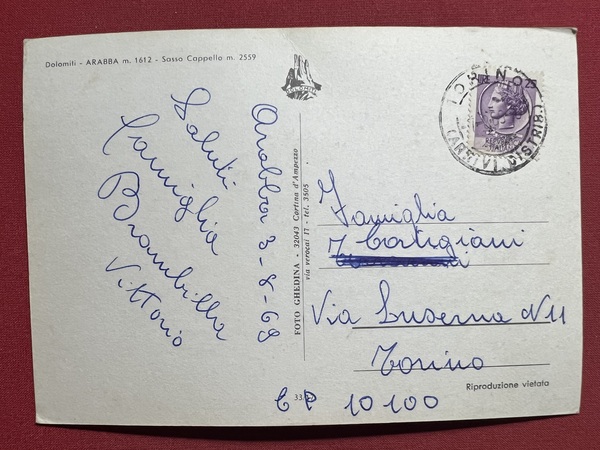 Dolomiti - ARABBA m. 1612 - Sasso Cappello m. 2559
Arabba 3-8-69
Saluti
famiglia
Brambilla
Vittorio
FOTO GHEDINA - 32043 Cortina d'Ampezzo
via verocai 17 - tel. 3505
Famiglia
Cortigiani
Via Luserna N 11
Torino
Riproduzione vietata
CP 10100